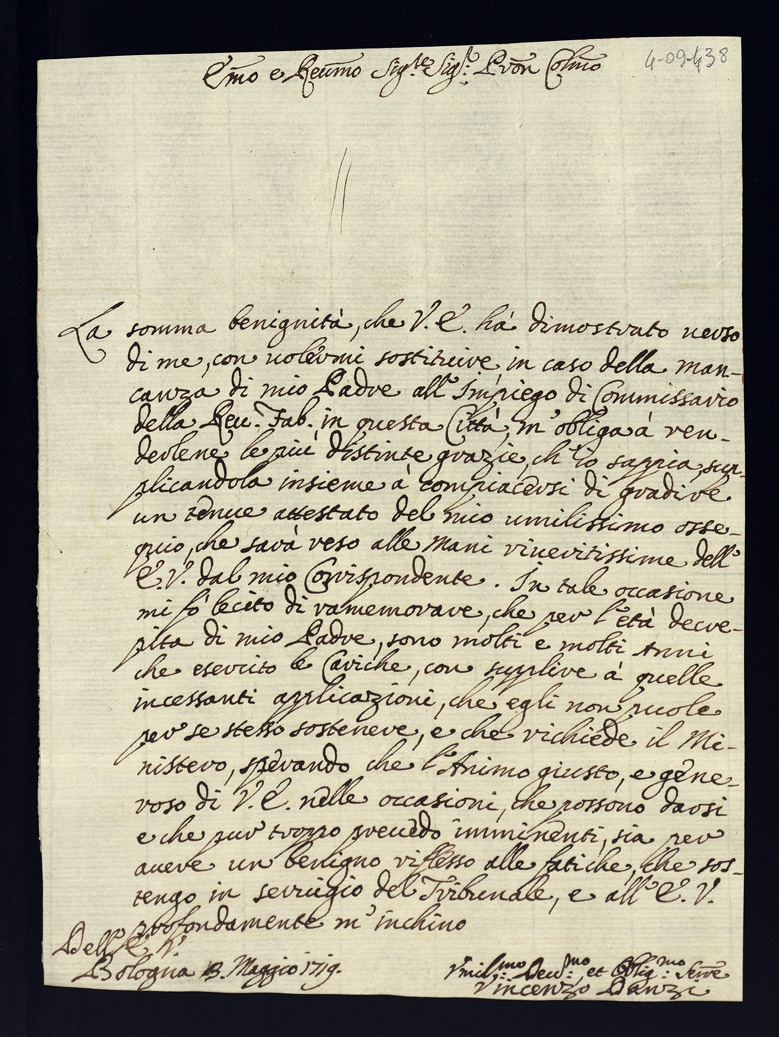 4-09-438
Emo e Reumo Sig.re Sig.r P'ron Colmo
La somma benignità, che V. E. há dimostrato verso
di me, con volermi sostituire, in caso della man-
canza di mio Padre all'Impiego di Commissario
della Reu. Fab. in questa Città m'obliga à ren-
derlene le più distinte grazie, ch'io sappia, sup-
plicandola insieme à compiacersi di gradire
un tenue attestato del mio umilissimo osse-
quio, che sarà reso alle mani riueritissime dell'
E. V. dal mio Corrispondente. In tale occasione
mi fo' lecito di ramemorare, che per l'età decre-
pita di mio Padre, sono molti e molti Anni
che esercito le Cariche, con supplire à quelle
incessanti applicazioni, che egli non puole
per se stesso sostenere, e che richiede il Mi-
nistero, sperando che l'Animo giusto, e gene-
roso di V. E. nelle occasioni, che possono darsi
e che pur troppo preuedo imminenti, sia per
auere un benigno riflesso alle fatiche, che sos-
tengo in seruigio del Tribunale, e all'E. V.
profondamente m'inchino
Dell'E. V.
Bologna 13. Maggio 1719.
Vmil.mo Deu.mo et Oblig.mo Serre
Vincenzo Danzi